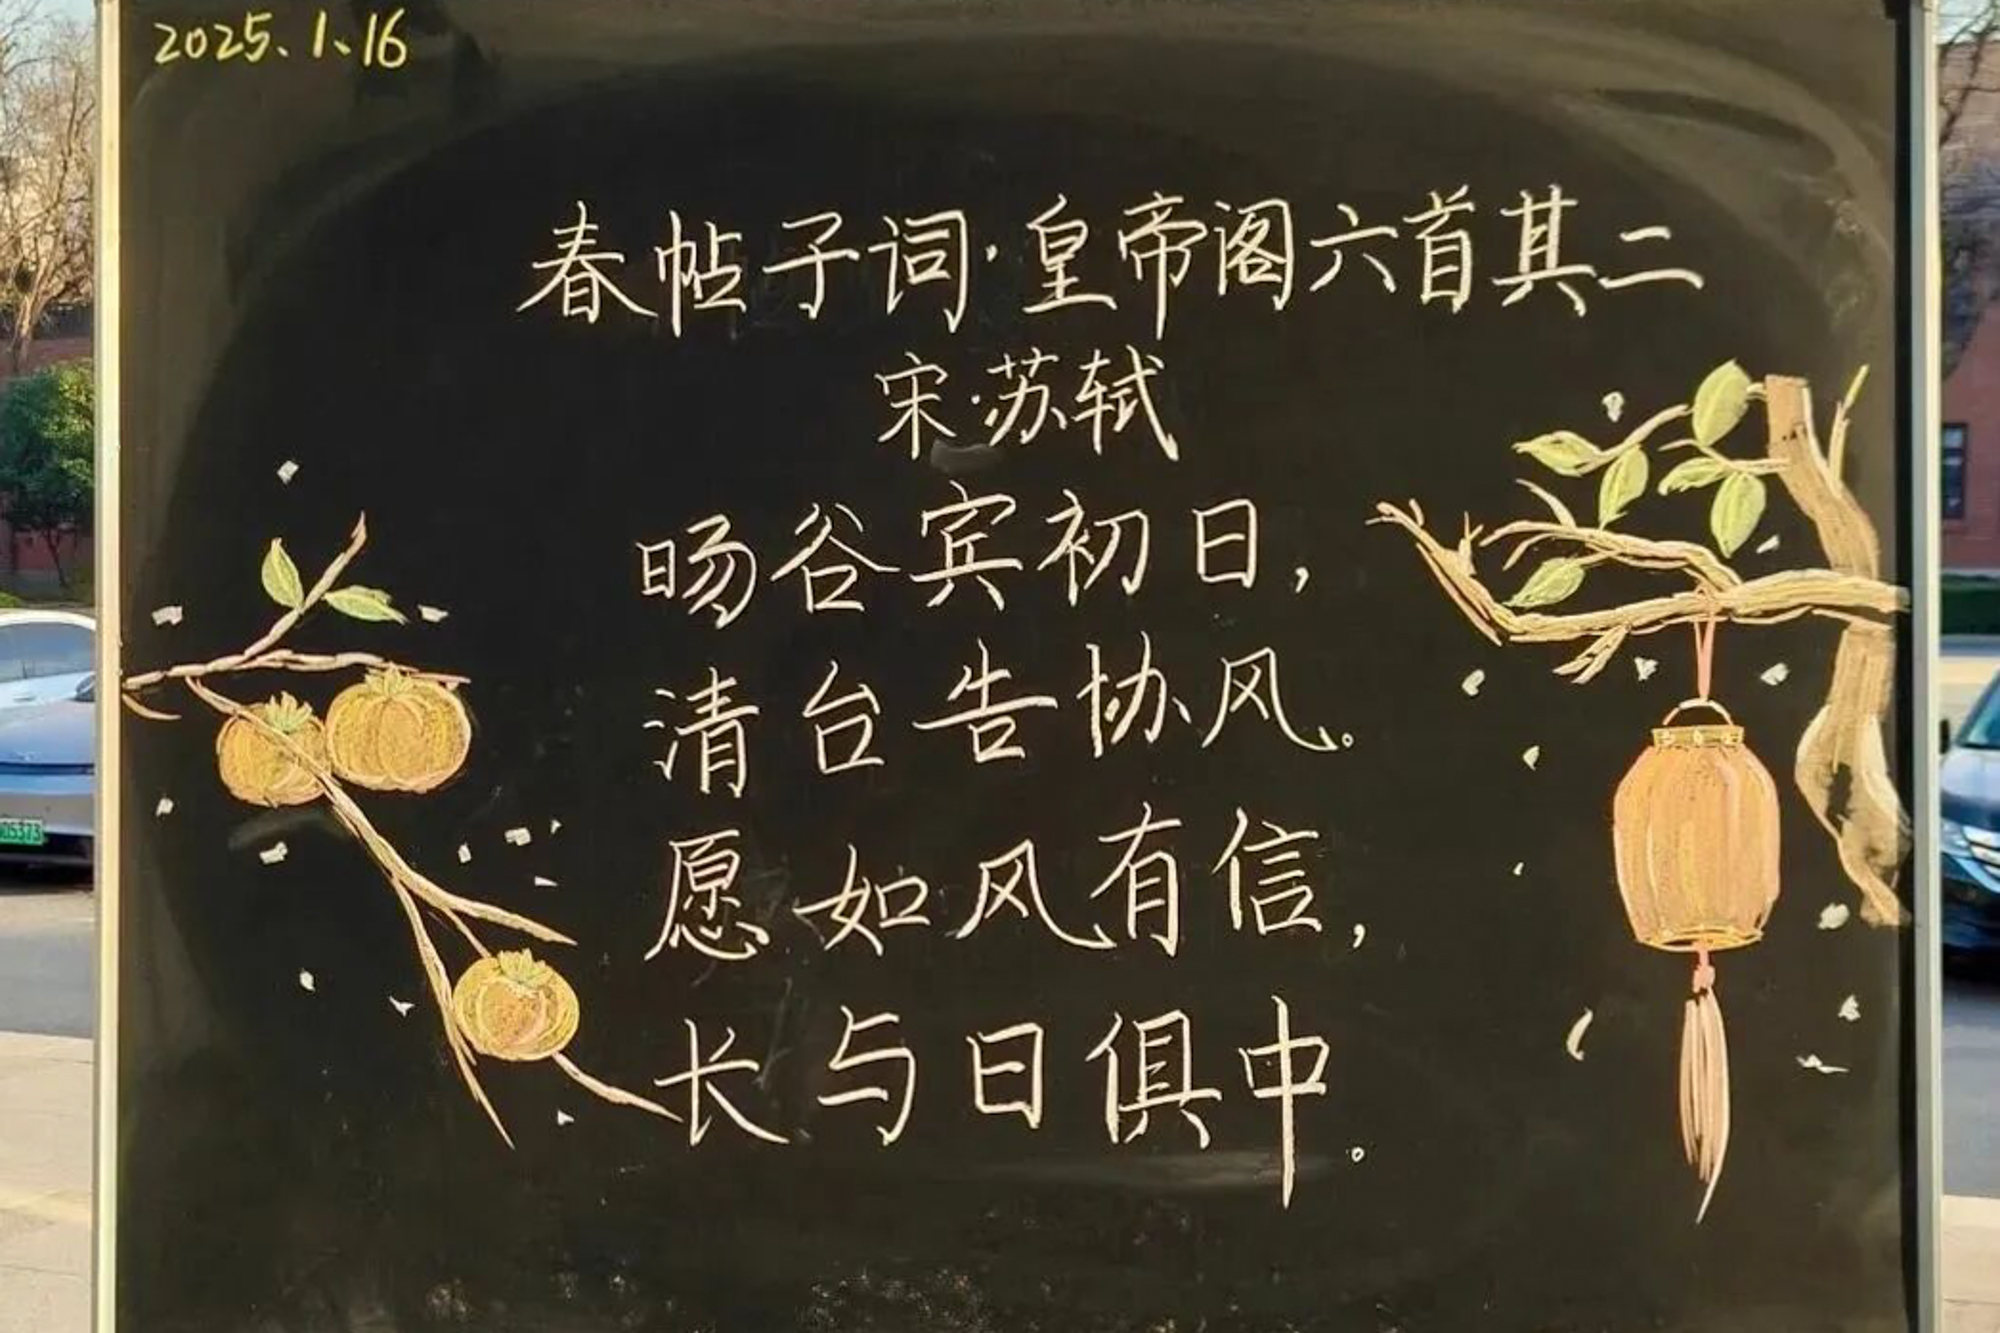 2025.1.16
春帖子词·皇帝阁六首其二
宋·苏轼
旸谷宾初日，
清台告协风。
愿如风有信，
长与日俱中。